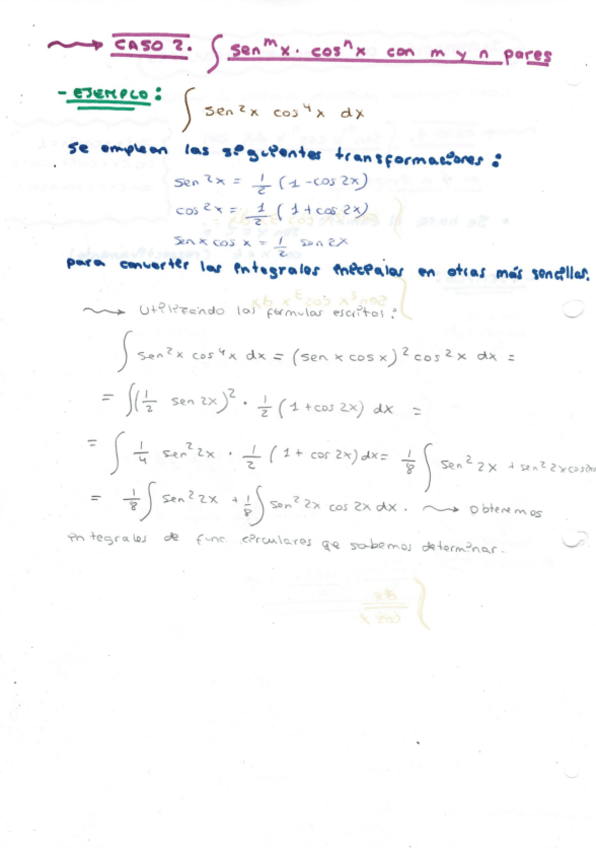 CASO 2. ∫ senᵐx · cosⁿx con m y n pares
- EJEMPLO: ∫ sen²x cos⁴x dx
Se emplean las siguientes transformaciones:
sen²x = 1/2 (1 - cos 2x)
cos²x = 1/2 (1 + cos 2x)
sen x cos x = 1/2 sen 2x
para convertir las integrales iniciales en otras más sencillas.
Utilizando las formulas escritas:
∫ sen²x cos⁴x dx = (sen x cos x)² cos²x dx =
= ∫(1/2 sen 2x)² · 1/2 (1 + cos 2x) dx =
= ∫ 1/4 sen² 2x · 1/2 (1 + cos 2x) dx = 1/8 ∫ sen² 2x + sen² 2x cos 2x
= 1/8 ∫ sen² 2x + 1/8 ∫ sen² 2x cos 2x dx. Obtenemos
integrales de func circulares qe sabemos determinar.